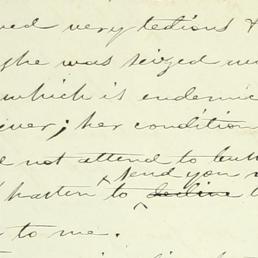 ved very tedious &
she was seized w
which is endemic
iver; her condition
d not attend to bu
send you
hasten to decline
to me.